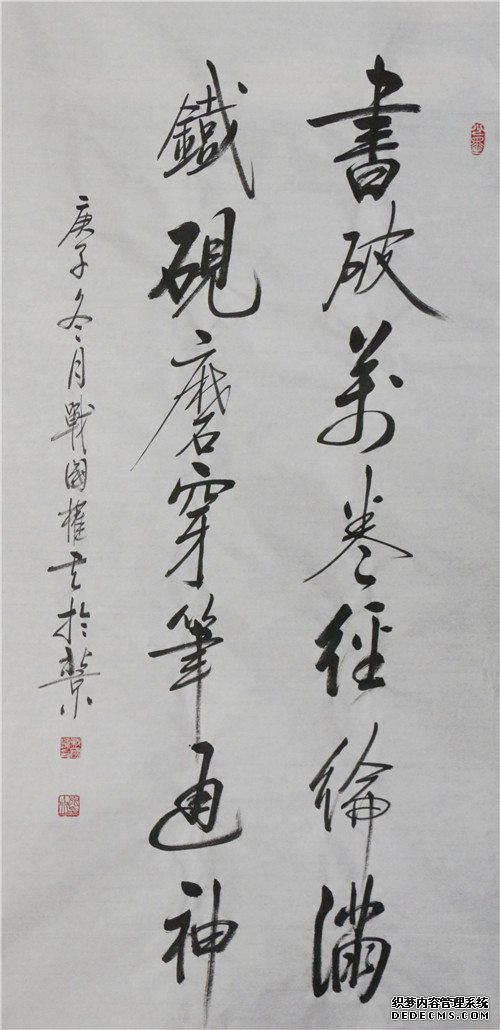 書破萬卷經綸滿
鐵硯磨穿筆通神
庚子冬月戰國權書於
织梦内容管理系统
DEDECMS.COM